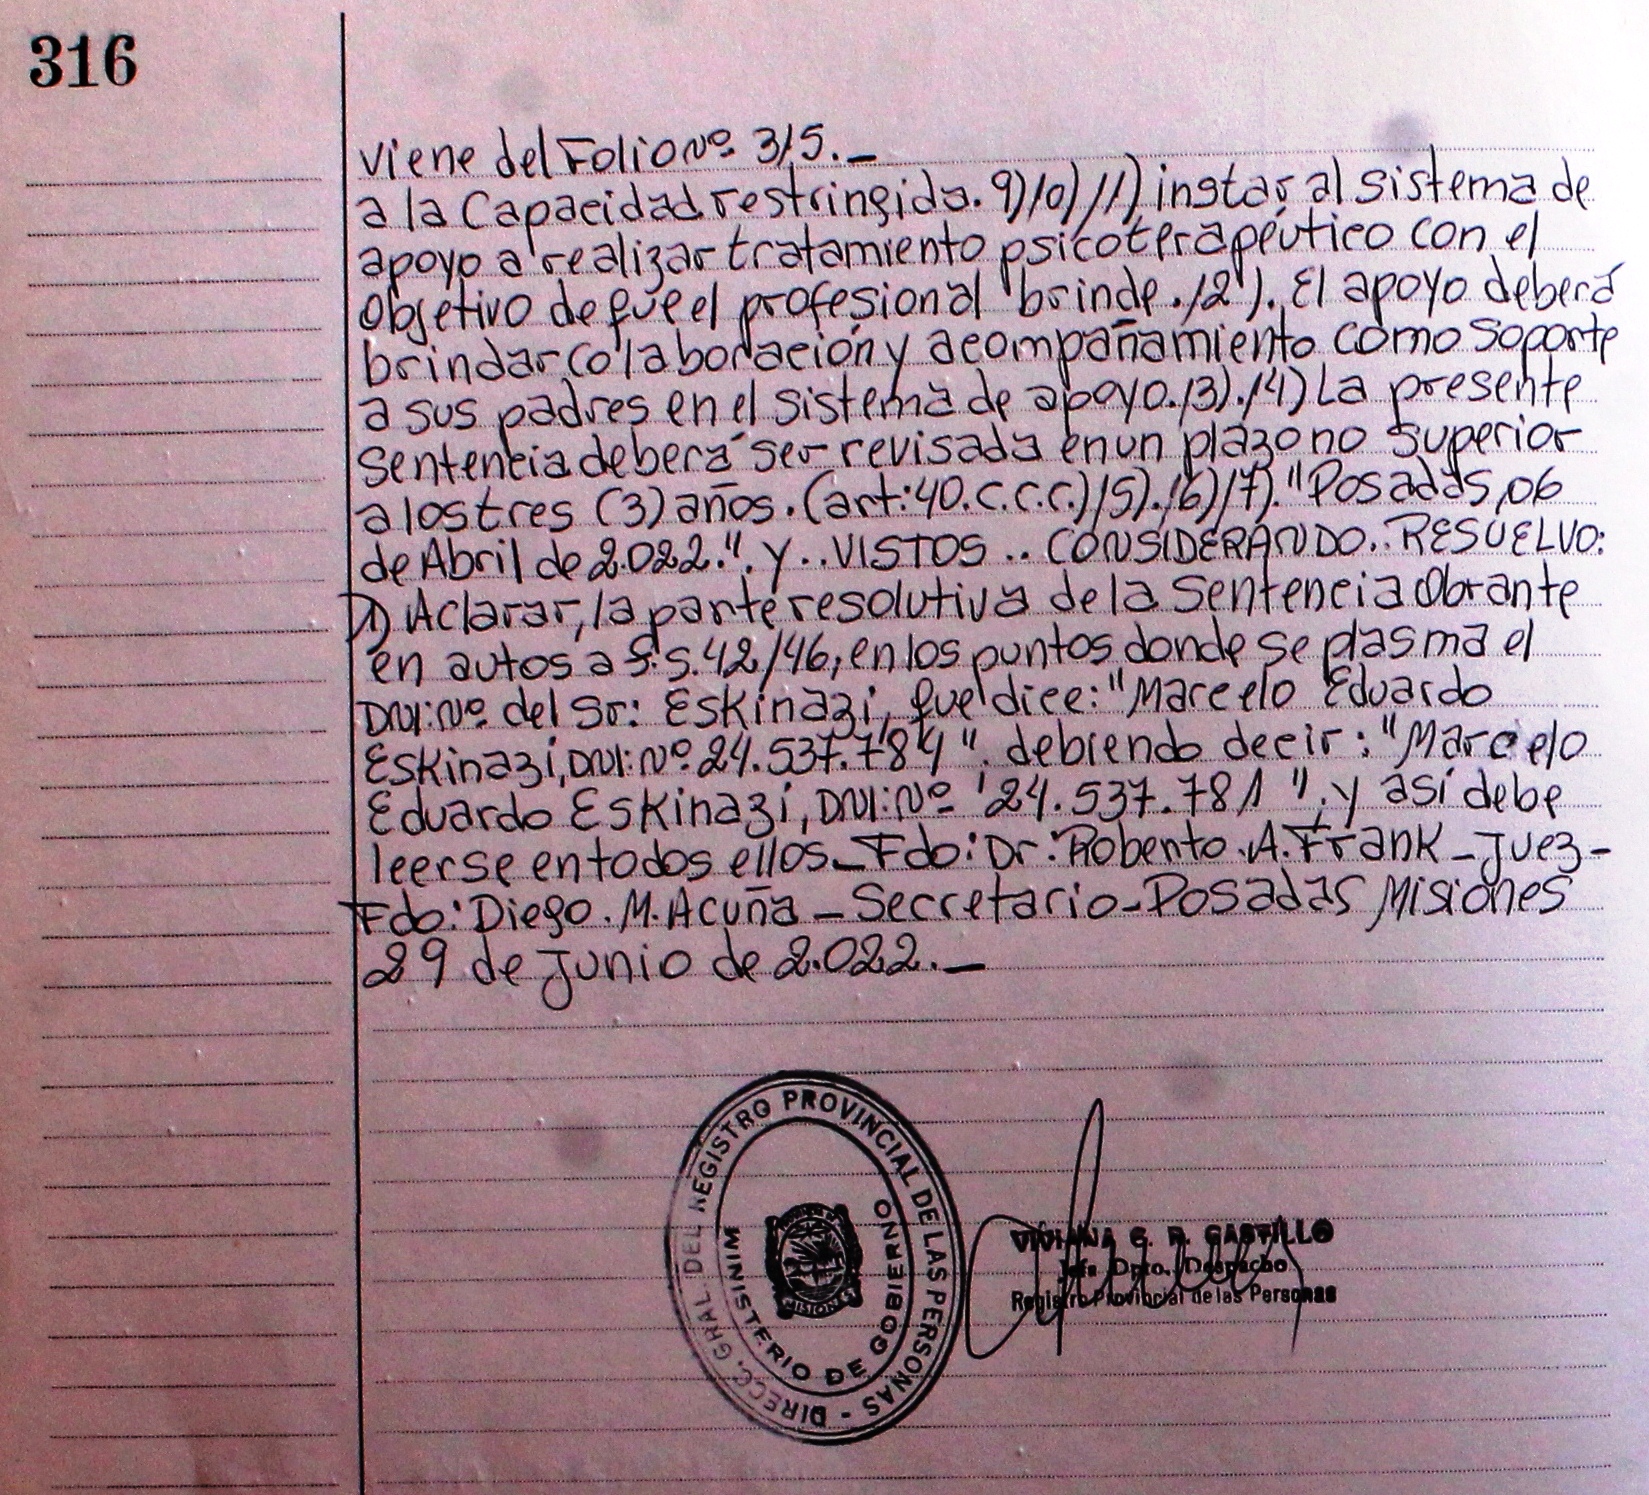 316
viene del Folio Nº 315._
a la Capacidad restringida. 9)10)11) instar al sistema de
apoyo a realizar tratamiento psicoterapéutico con el
objetivo de que el profesional brinde.12). El apoyo deberá
brindar colaboración y acompañamiento como soporte
a sus padres en el sistema de apoyo.13).14) La presente
Sentencia deberá ser revisada en un plazo no superior
a los tres (3) años. (art:40.C.C.C.)15).16)17). "Posadas, 06
de Abril de 2.022.". y.. VISTOS.. CONSIDERANDO.. RESUELVO:
1) Aclarar, la parte resolutiva de la Sentencia Obrante
en autos a f.s.42/46, en los puntos donde se plasma el
DNI:Nº del Sr: Eskinazi, que dice: "Marcelo Eduardo
Eskinazi, DNI:Nº 24.537.784". debiendo decir: "Marcelo
Eduardo Eskinazi, DNI:Nº 24.537.781", y así debe
leerse en todos ellos._ Fdo: Dr: Robento. A. Frank _ Juez-
Fdo: Diego. M. Acuña _ Secretario-Posadas Misiones
29 de Junio de 2.022._
DIRECC. GRAL. DEL REGISTRO PROVINCIAL DE LAS PERSONAS -
MINISTERIO DE GOBIERNO
MISIONES
VIVIANA G. R. CASTILLO
Jefa Dpto. Despacho
Registro Provincial de las Personas